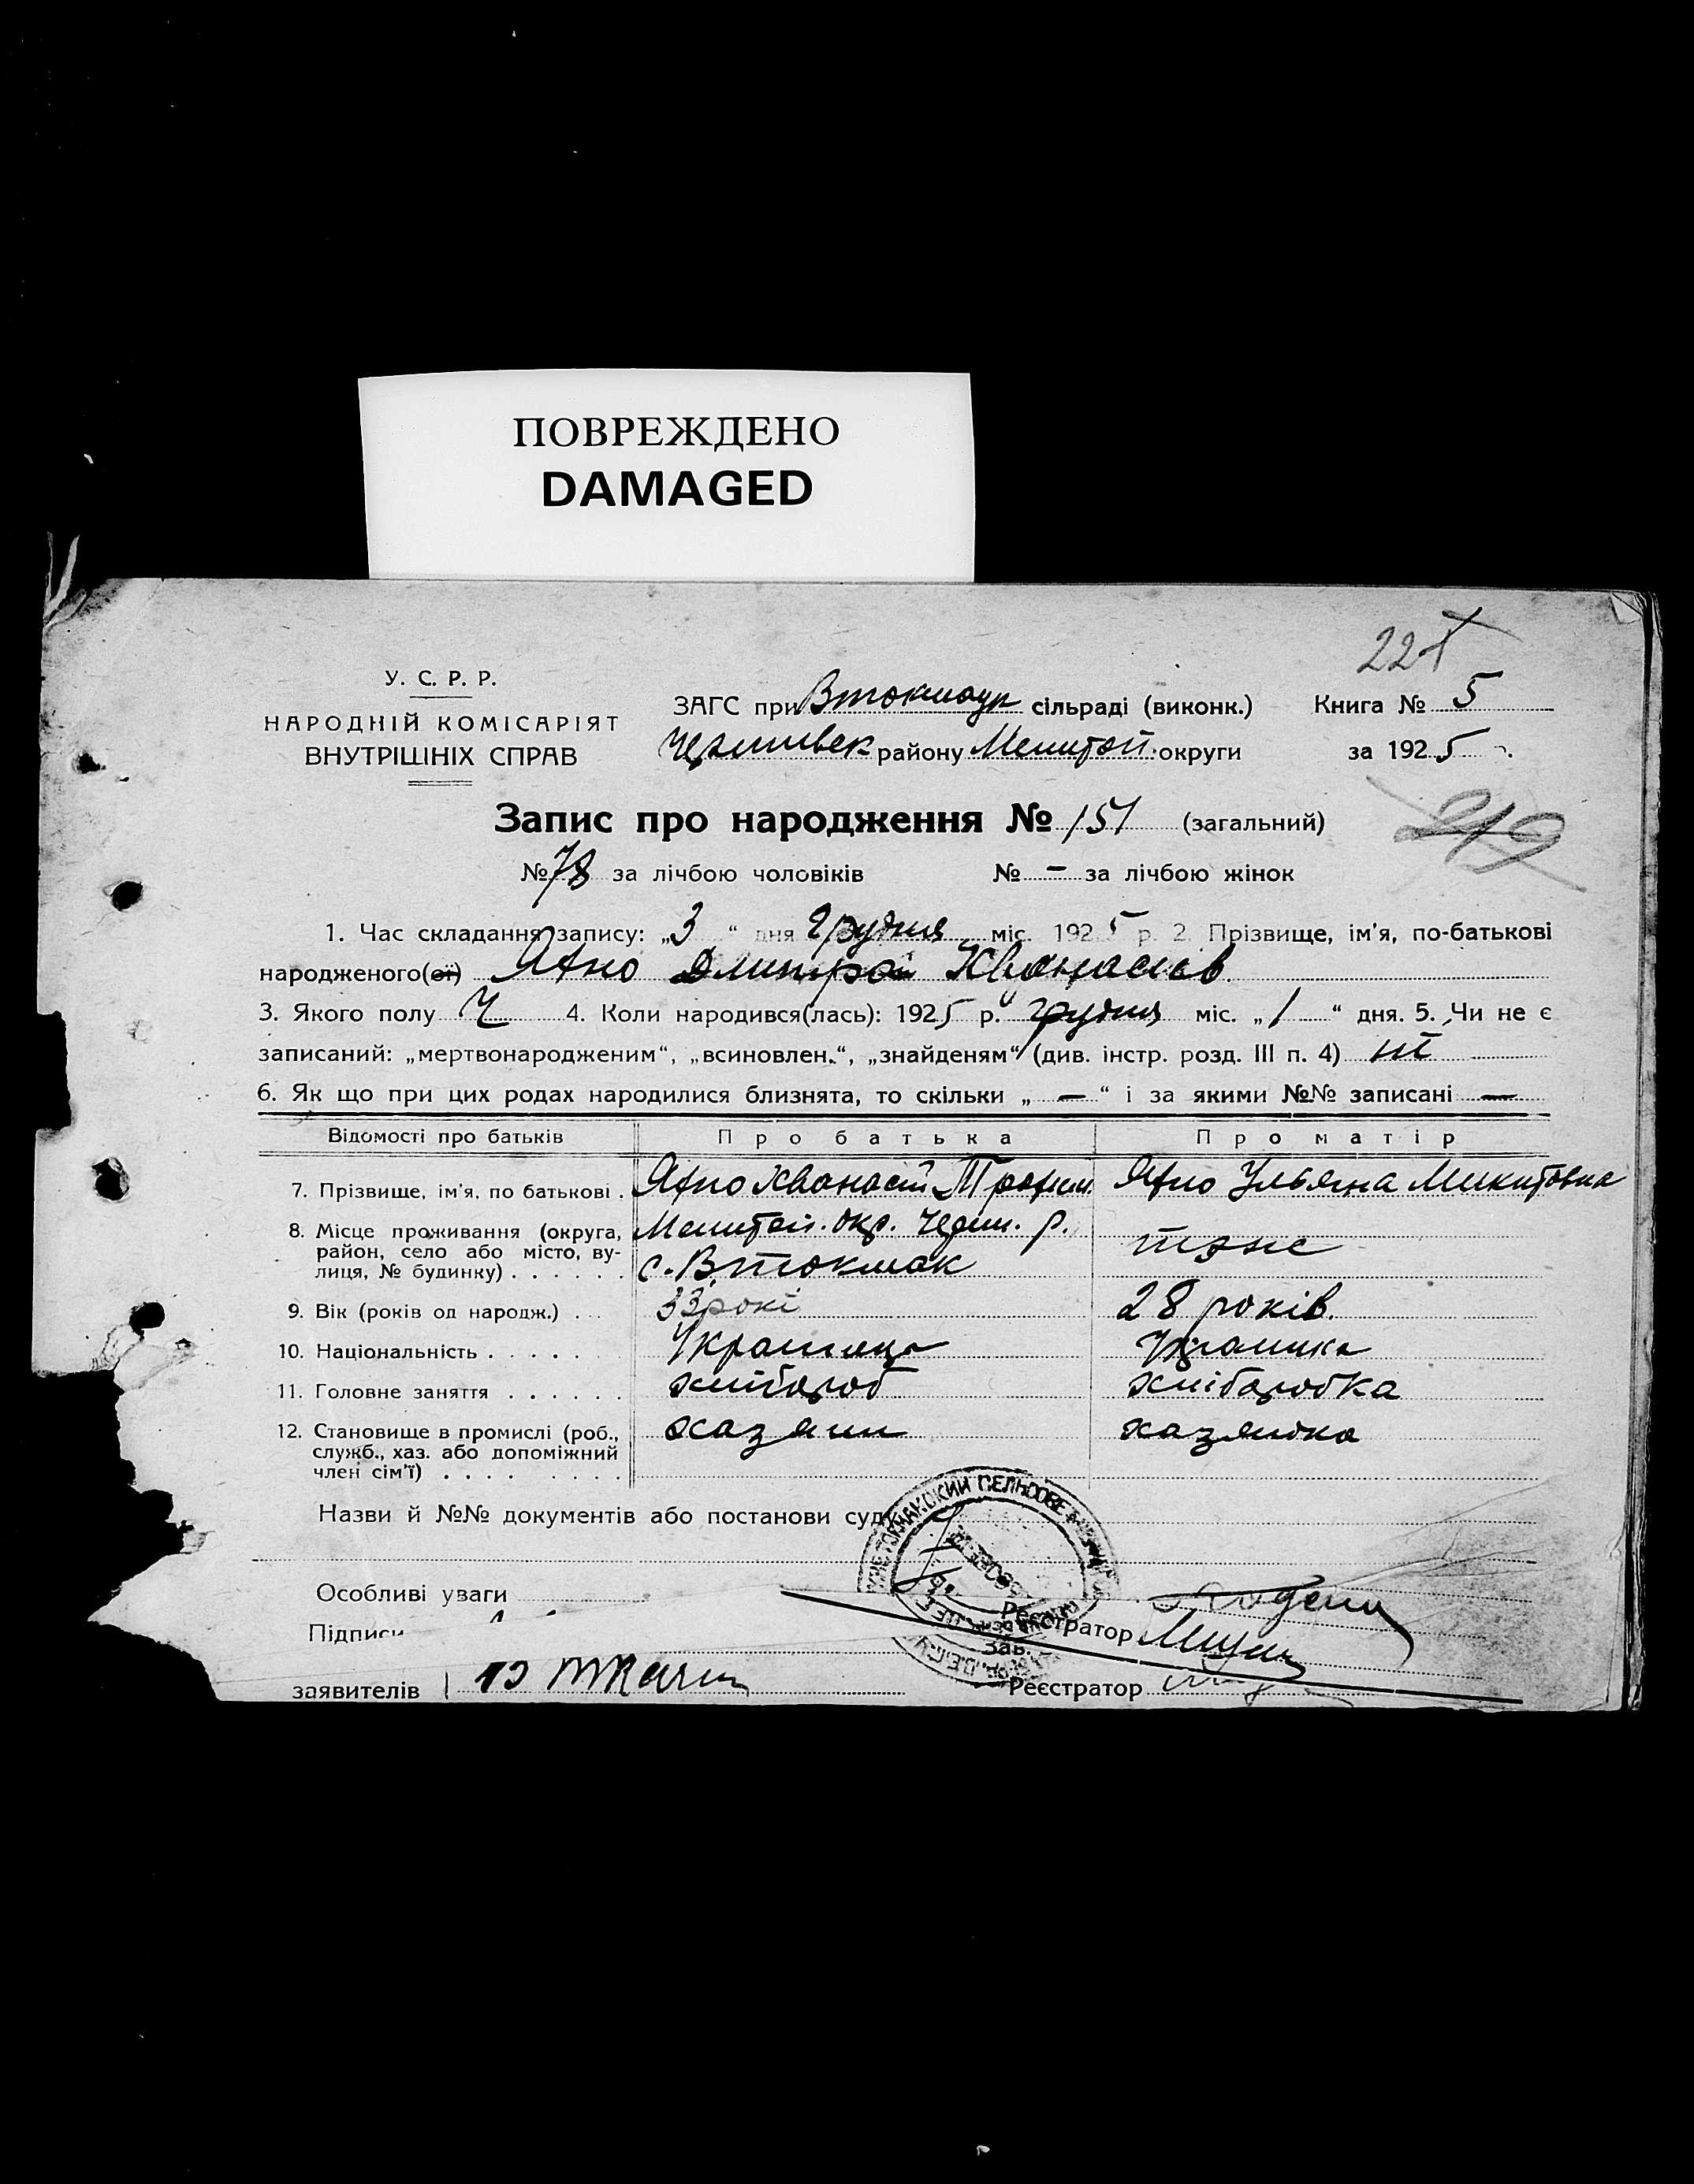 ПОВРЕЖДЕНО
DAMAGED
22
У. С. Р. Р.
НАРОДНІЙ КОМІСАРІЯТ
ВНУТРІШНІХ СПРАВ
ЗАГС при Втокмацк сільраді (виконк.) Книга № 5
району Мелитоп. округи за 1925 р.
Запис про народження № 151 (загальний)
219
№ 78 за лічбою чоловіків № — за лічбою жінок
1. Час складання запису: „3“ дня Грудня міс. 1925 р. 2. Прізвище, ім'я, по-батькові
народженого(ої) Яхно Дмитро Хванасієв
3. Якого полу Ч 4. Коли народився(лась): 1925 р. грудня міс. „1“ дня. 5. Чи не є
записаний: „мертвонародженим“, „всиновлен.“, „знайденям“ (див. інстр. розд. III п. 4) ні
6. Як що при цих родах народилися близнята, то скільки „—“ і за якими №№ записані —
Відомості про батьків Про батька Про матір
7. Прізвище, ім'я, по батькові . Яхно Хванасій Трохим. Яхно Ульяна Микитовна
8. Місце проживання (округа, район, село або місто, вулиця, № будинку) . . . . . . Мелитоп. окр. Черниг. р.
с. Втокмак теж
9. Вік (років од народж.) . . . 33 рокі 28 років.
10. Національність . . . . . Українець Українка
11. Головне заняття . . . . . . хлібороб хліборобка
12. Становище в промислі (роб., служб., хаз. або допоміжний член сім'ї) . . . . . . . . хазяин хазяйка
Назви й №№ документів або постанови суду
Особливі уваги
Підписи
Реєстратор
Зав.
заявителів Реєстратор